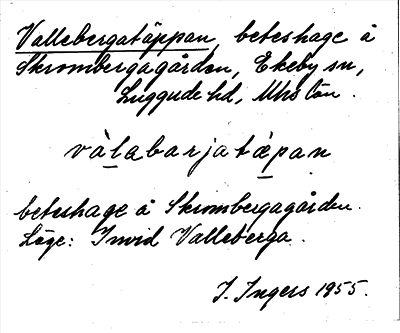 Vallebergatäppan, beteshage å
Skrombergagården, Ekeby sn,
Luggude hd, Mhs län.
và̱labarjatæ̱̀pan
beteshage å Skrombergagården.
Läge: Invid Valleberga.
I. Ingers 1955.